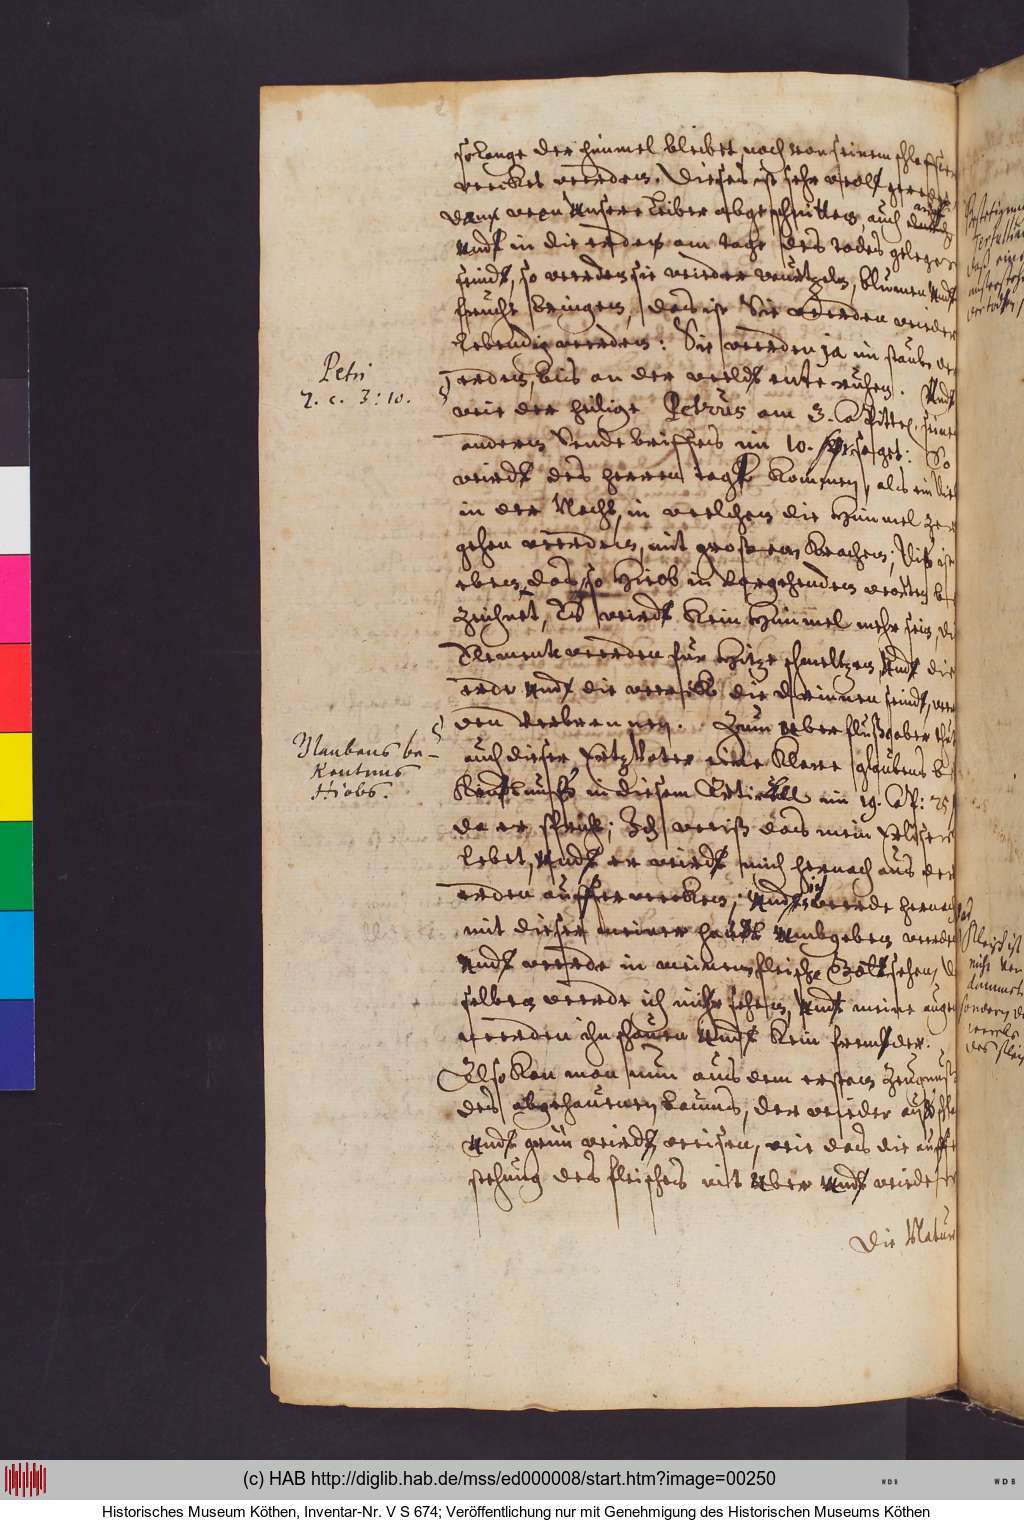 so lange der himmel bleibet, noch von seinem schlaffe
wecket werden. Dieses ist sehr woll geredet
dann wenn Unsere Leiber abgeschnitten, auch
Undt in die erden am tage des todes geleget
seindt, so werden sie wieder wurtzeln, blumen Undt
frucht bringen, das ist Sie werden wieder
lebendig werden: Sie werden ja im staube der
erden, bis an der weldt ente ruhen. Undt
Petri
2. c. 3: 10.
wie der heilige Petrus am 3. Capittel seines
anderen Sendebriffes im 10. saget: So
wirdt des herren tag kommen, als ein Dieb
in der Nacht, in welchem die Himmel zer
gehen werden, mit grossem krachen; Diß ist
eben das, so Hiob in Vorgehenden worten be
zeichnet, Es wirdt kein Himmel mehr sein, die
Elementa werden für Hitze schmeltzen, Undt die
erde Undt die werck die drinnen seindt, wer
den verbrennen. Zum uberfluß aber thut
Glaubens be-
kentnus
Hiobs.
auch dieser Ertz Vater eine klare glaubens be
kentnuß in diesem Articull im 19. Cap: 25
da er spricht; Ich weiß das mein erlöser
lebet, Undt er wirdt mich hernach aus der
erden aufferwecken; Undt werde hernach
mit dieser meiner haudt Umbgeben werden
Undt werde in meinem fleische Gott sehen,
selben werde ich mihr sehen, Undt meine augen
werden ihn schauen Undt kein fremder.
Also kan man nun aus dem ersten zeugnus
des abgehauenen baums, der wieder
Undt grün wirdt weisen, wie das die auffer
stehung des fleisches mit Uber Undt wieder
Die Natur
Fleisch ist
nicht ver
dammet
sondern die
werck
des fleis
(c) HAB http://diglib.hab.de/mss/ed000008/start.htm?image=00250
Historisches Museum Köthen, Inventar-Nr. V S 674; Veröffentlichung nur mit Genehmigung des Historischen Museums Köthen